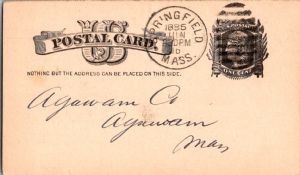 U S
POSTAL CARD.
SPRINGFIELD
1885
JUN
30PM
MASS.
ONE CENT
NOTHING BUT THE ADDRESS CAN BE PLACED ON THIS SIDE.
Agawam Co
Agawam
Mass